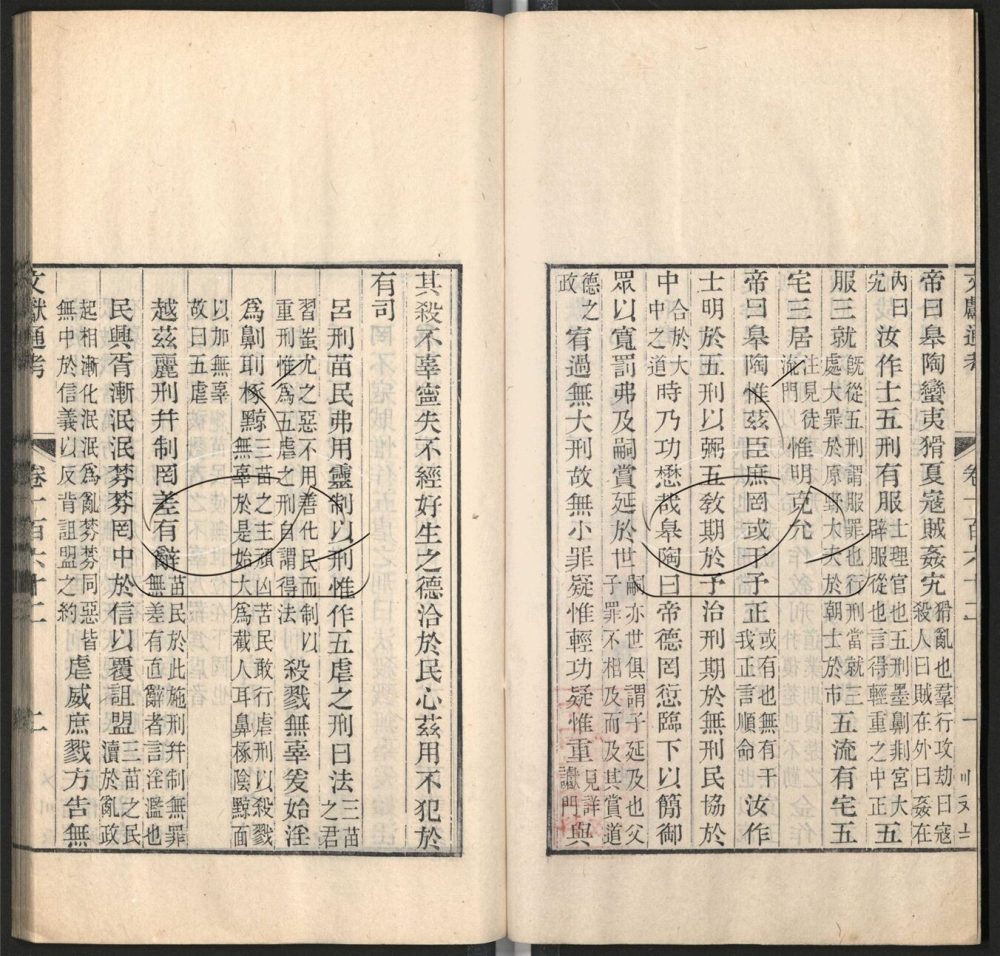 文獻通考 卷一百六十二 一
帝曰皋陶蠻夷猾夏寇賊姦宄猾亂也羣行攻劫曰寇殺人曰賊在外曰姦在
內曰宄汝作士五刑有服士理官也五刑墨劓剕宮大辟服從也言得輕重之中正五
服三就既從五刑謂服罪也行刑當就三處大罪於原野大夫於朝士於市五流有宅五
宅三居注見徒流門惟明克允
帝曰皋陶惟茲臣庶罔或干予正或有也無有干我正言順命汝作
士明於五刑以弼五教期於予治刑期於無刑民協於
中合於大中之道時乃功懋哉皋陶曰帝德罔愆臨下以簡御
眾以寬罰弗及嗣賞延於世嗣亦世俱謂子延及也父子罪不相及而及其賞道
德之政宥過無大刑故無小罪疑惟輕功疑惟重見詳讞門與
其殺不辜寧失不經好生之德洽於民心茲用不犯於
有司
呂刑苗民弗用靈制以刑惟作五虐之刑曰法三苗之君
習蚩尤之惡不用善化民而制以重刑惟為五虐之刑自謂得法殺戮無辜爰始淫
為劓刵椓黥三苗之主頑凶苦民敢行虐刑以殺戮無辜於是始大為截人耳鼻椓陰黥面
以加無辜故曰五虐
越茲麗刑幷制罔差有辭苗民於此施刑幷制無罪無差有直辭者言淫濫也
民興胥漸泯泯棼棼罔中於信以覆詛盟三苗之民瀆於亂政
起相漸化泯泯為亂棼棼同惡皆無中於信義以反背詛盟之約虐威庶戮方告無
文獻通考 卷一百六十二 二